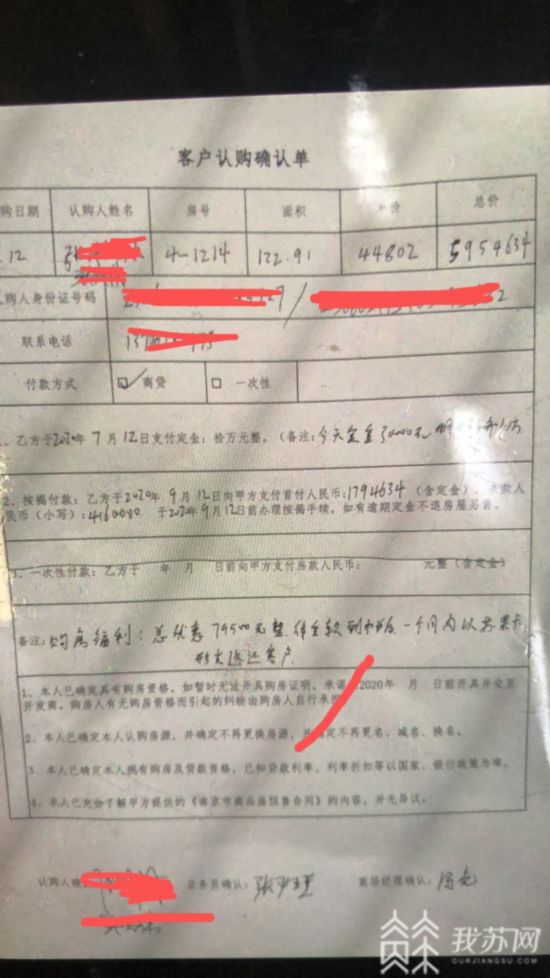 客户认购确认单
购日期 认购人姓名 房号 面积 价 总价
.12 张 4-1214 122.91 44802 5954634
认购人身份证号码 /
联系电话
付款方式 ☑商贷 □一次性
、乙方于2020年7月12日支付定金:拾万元整。(备注:今天定金30000元,明
2、按揭付款:乙方于2020年9月12日向甲方支付首付人民币:1794634(含定金)、余款人
民币(小写):4160000 于2020年9月12日前办理按揭手续,如有逾期定金不退房屋另售。
3、一次性付款:乙方于 年 月 日前向甲方支付房款人民币: 元整(含定金)
备注:购房福利:总优惠79500元整.待全款到帐后一个月内以苏果卡
形式返还客户.
1、本人已确定具有购房资格,如暂时无法开具购房证明,承诺 2020年 月 日前开具并交至
开发商。购房人有无购房资格而引起的纠纷由购房人自行承担
2、本人已确定本人认购房源,并确定不再更换房源,并确定不再更名、减名、换名。
3、本人已确定本人拥有购房及贷款资格,已知贷款利率、利率折扣等以国家、银行政策为准。
4、本人已充分了解甲方提供的《南京市商品房预售合同》的内容,并无异议。
认购人确 业务员确认:张 案场经理确认:冯
我苏网
OURJIANGSU.COM